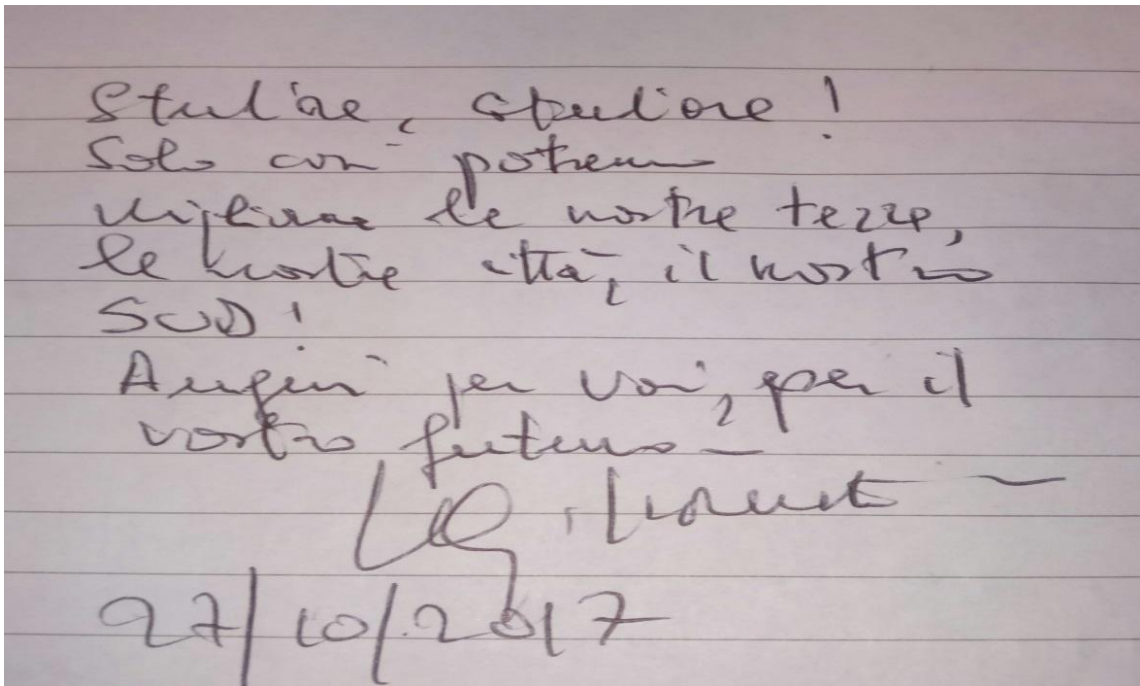 Studiare, studiare!
Solo così potremo
migliorare le nostre terre,
le nostre città, il nostro
SUD!
Auguri per voi, per il
vostro futuro -
27/10/2017